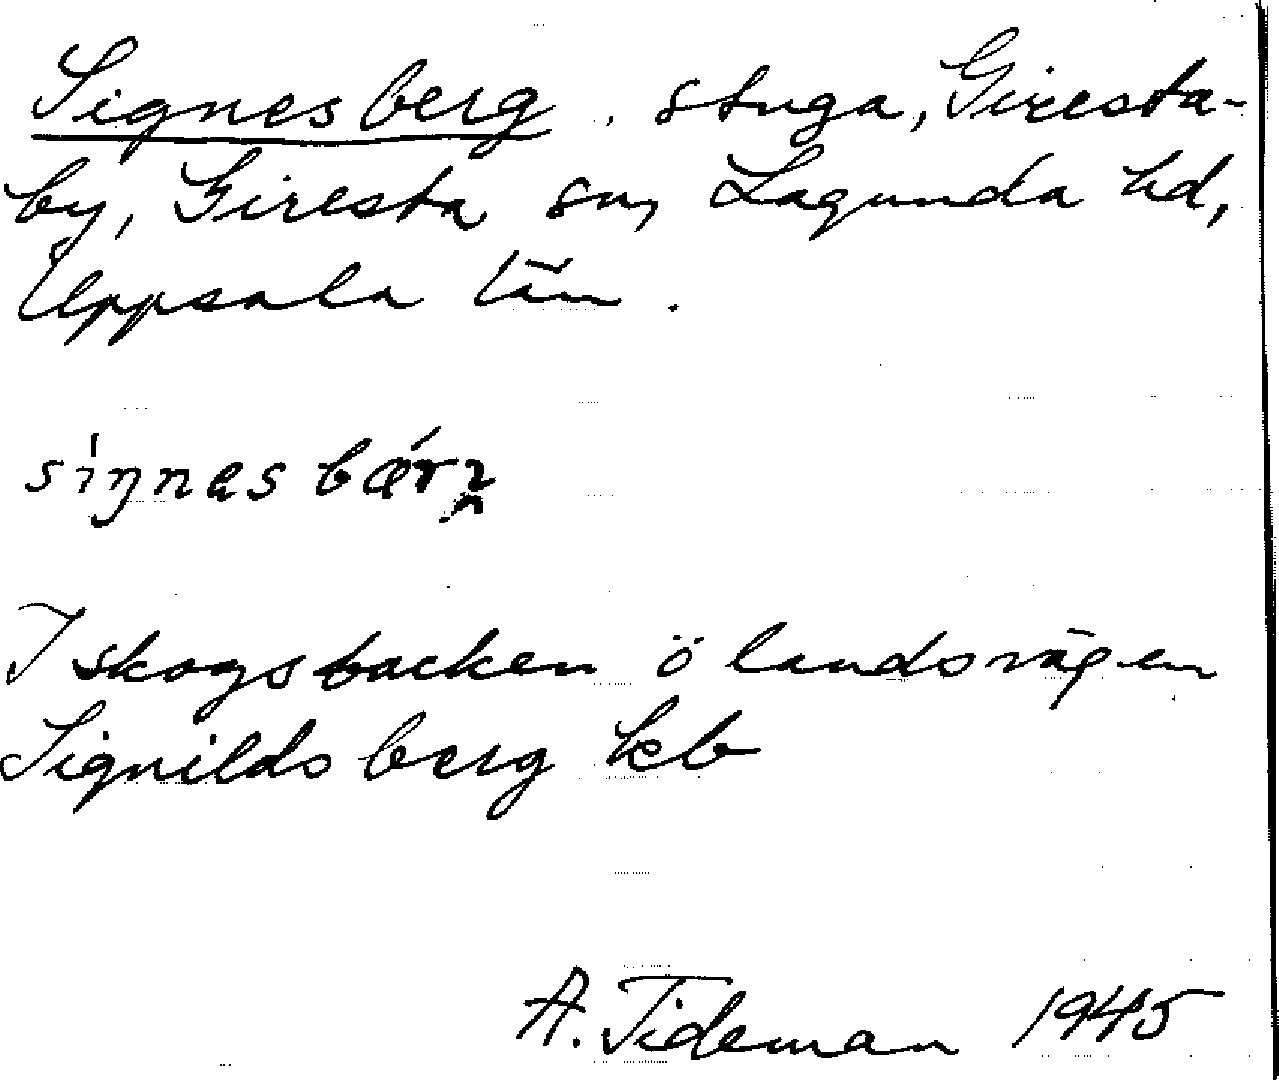 Signesberg, stuga, Giresta-
by, Giresta sn, Lagunda hd,
Uppsala län.
I skogsbacken ö landsvägen
Signildsberg kb
A. Tideman 1945